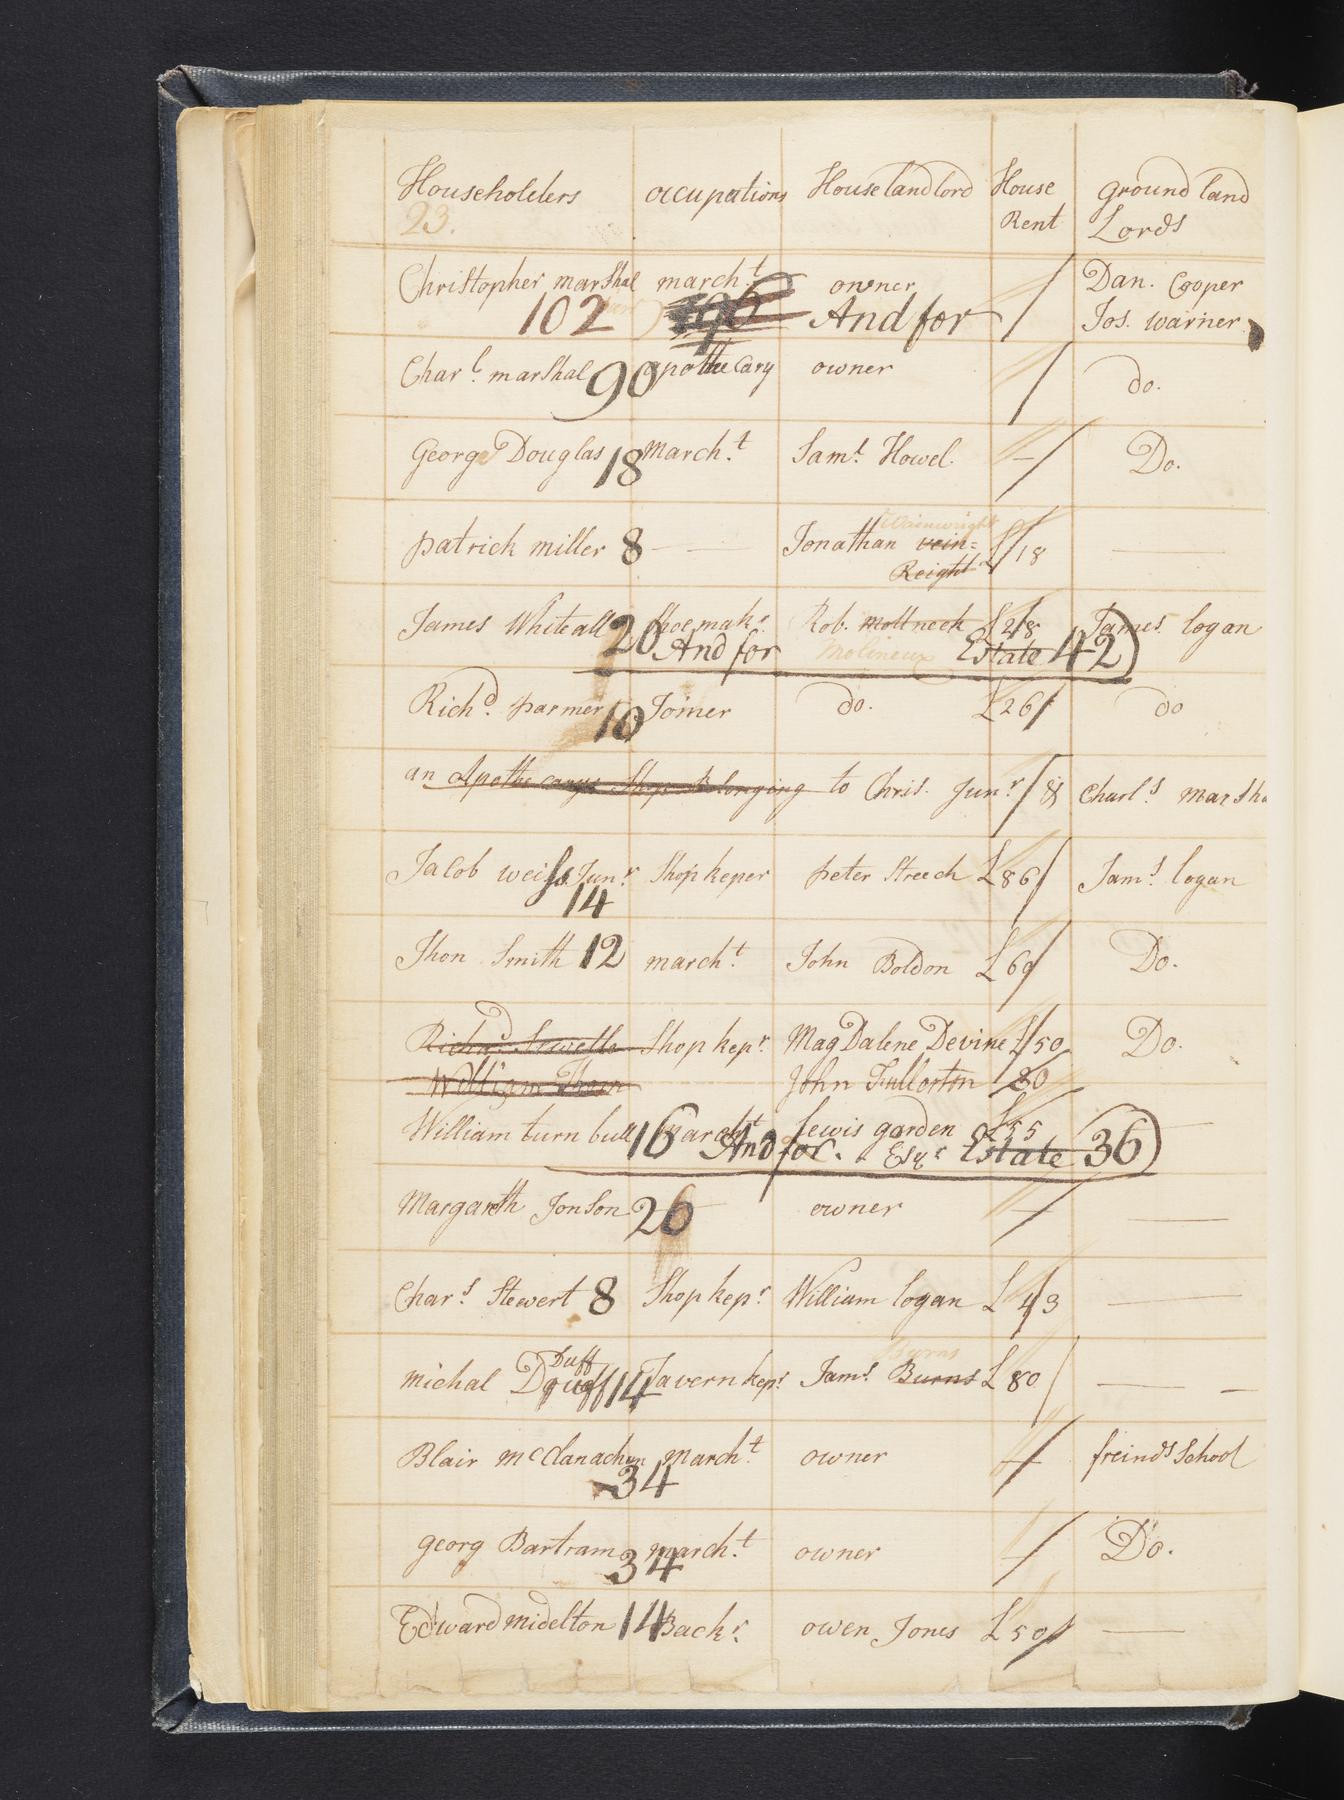 Householders occupations House landlord House ground land
23. Rent Lords
Christopher marshal march.t owner / Dan. Cooper
102 And for Jos. warner
Char.l marshal 90 apothecary owner / do.
George Douglas 18 march.t Sam.l Howel. / Do.
Wainwright
patrick miller 8 Jonathan vein= £18
Reight
James Whiteall 20 Shoe mak.r Rob. mollneck £28 James logan
And for Molineux Estate 42)
Rich.d parmer 10 Joiner do. £26/ do
an Apothecarys Shop Belonging to Chris. Jun.r / & Charl.s marsha
Jacob weiss Jun.r Shop keper peter Streech £86/ Jam.s logan
14
Jhon Smith 12 march.t John Boldon £60 Do.
Rich.d Shop kep.r MagDalene Devine £50 Do.
William John Fullorton 80
William turn bull 16 march.t lewis garden £55
And for. Esq.r Estate 36)
Margareth Jonson 26 owner /
Char.s Stewert 8 Shop kep.r William logan £43
Duff Burns
michal 14 Tavern kep.r Jam.s Burns £80 /
Blair mcclanachan march.t owner / freinds School
34
georg Bartram march.t owner / Do.
34
Edward midelton 14 Back.r owen Jones £50/